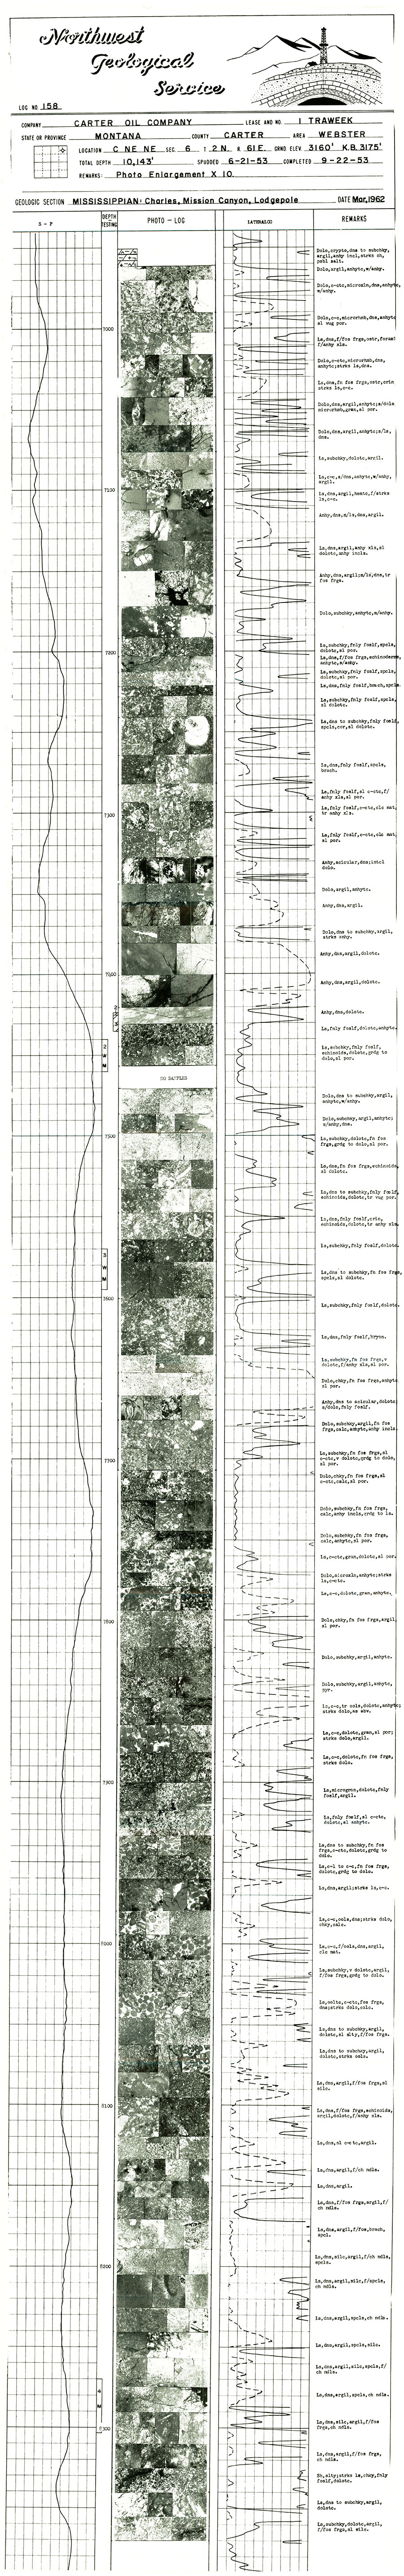 Northwest
Geological
Service
LOG NO 158
COMPANY CARTER OIL COMPANY LEASE AND NO. 1 TRAWEEK
STATE OR PROVINCE MONTANA COUNTY CARTER AREA WEBSTER
LOCATION C NE NE SEC 6 T 2 N. R 61 E. GRND ELEV 3160' K.B. 3175'
TOTAL DEPTH 10,143' SPUDDED 6-21-53 COMPLETED 9-22-53
REMARKS: Photo Enlargement X 10.
GEOLOGIC SECTION MISSISSIPPIAN: Charles, Mission Canyon, Lodgepole DATE Mar, 1962
S - P
DEPTH
TESTING
PHOTO - LOG
LATERALOG
REMARKS
Dolo, crypto, dns to subchky,
argil, anhy incl, strks sh,
psbl salt.
Dolo, argil, anhytc, w/anhy.
Dolo, c-ctc, microxln, dns, anhytc,
w/anhy.
7000
Dolo, c-c, microrhmb, dns, anhytc
sl vug por.
Ls, dns, f/fos frgs, ostr, foram?
f/anhy xls.
Dolo, c-ctc, microrhmb, dns,
anhytc; strks ls, dns.
Ls, dns, fn fos frgs, ostr, crin
strks ls, c-c.
Dolo, dns, argil, anhytc; s/dolo
microrhmb, gran, sl por.
Dolo, dns, argil, anhytc; s/ls,
dns.
Ls, subchky, dolotc, argil.
Ls, c-c, s/dns, anhytc, w/anhy,
argil.
7100
Ls, dns, argil, hemtc, f/strks
ls, c-c.
Anhy, dns, s/ls, dns, argil.
Ls, dns, argil, anhy xls, sl
dolotc, anhy incls.
Anhy, dns, argil; s/ls, dns, tr
fos frgs.
Dolo, subchky, anhytc, s/anhy.
7200
Ls, subchky, fnly foslf, spcls,
dolotc, sl por.
Ls, dns, f/fos frgs, echinoderms,
anhytc, s/anhy.
Ls, subchky, fnly foslf, spcls,
dolotc, sl por.
Ls, dns, fnly foslf, brach, spcls.
Ls, subchky, fnly foslf, spcls,
sl dolotc.
Ls, dns to subchky, fnly foslf,
spcls, cor, sl dolotc.
Ls, dns, fnly foslf, spcls,
brach.
Ls, fnly foslf, sl c-ctc, f/
anhy xls, sl por.
7300
Ls, fnly foslf, c-ctc, clc mat,
tr anhy xls.
Ls, fnly foslf, c-ctc, clc mat,
sl por.
Anhy, acicular, dns; intcl
dolo.
Dolo, argil, anhytc.
Anhy, dns, argil.
Dolo, dns to subchky, argil,
strks anhy.
Anhy, dns, argil, dolotc.
7400
Anhy, dns, argil, dolotc.
Anhy, dns, dolotc.
Ls, fnly foslf, dolotc, anhytc.
Ls, subchky, fnly foslf,
echinoids, dolotc, grdg to
dolo, sl por.
2
W
M
NO SAMPLES
Dolo, dns to subchky, argil,
anhytc, w/anhy.
Dolo, subchky, argil, anhytc;
s/anhy, dns.
7500
Ls, subchky, dolotc, fn fos
frgs, grdg to dolo, sl por.
Ls, dns, fn fos frgs, echinoids,
sl dolotc.
Ls, dns to subchky, fnly foslf,
echinoids, dolotc, tr vug por.
Ls, dns, fnly foslf, crin,
echinoids, dolotc, tr anhy xls.
Ls, subchky, fnly foslf, dolotc.
3
W
M
Ls, dns to subchky, fn fos frgs,
spcls, sl dolotc.
7600
Ls, subchky, fnly foslf, dolotc.
Ls, dns, fnly foslf, bryzn.
Ls, subchky, fn fos frgs, v
dolotc, f/anhy xls, sl por.
Dolo, chky, fn fos frgs, anhytc
sl por.
Anhy, dns to acicular, dolotc;
s/dolo, fnly foslf.
Dolo, subchky, argil, fn fos
frgs, calc, anhytc, anhy incls.
7700
Ls, subchky, fn fos frgs, sl
c-ctc, v dolotc, grdg to dolo,
sl por.
Dolo, chky, fn fos frgs, sl
c-ctc, calc, sl por.
Dolo, subchky, fn fos frgs,
calc, anhy incls, grdg to ls.
Dolo, subchky, fn fos frgs,
calc, anhytc, sl por.
Ls, c-ctc, gran, dolotc, sl por.
Dolo, microxln, anhytc; strks
ls, c-ctc.
Ls, c-c, dolotc, gran, anhytc.
7800
Dolo, chky, fn fos frgs, argil,
sl por.
Dolo, subchky, argil, anhytc.
Dolo, subchky, argil, anhytc,
pyr.
Ls, c-c, tr ools, dolotc, anhytc;
strks dolo, as abv.
Ls, c-c, dolotc, gran, sl por;
strks dolo, argil.
Ls, c-c, dolotc, fn fos frgs,
strks dolo.
7900
Ls, microgran, dolotc, fnly
foslf, argil.
Ls, fnly foslf, sl c-ctc,
dolotc, sl anhytc.
Ls, dns to subchky, fn fos
frgs, c-ctc, dolotc, grdg to
dolo.
Ls, c-l to c-c, fn fos frgs,
dolotc, grdg to dolo.
Ls, dns, argil; strks ls, c-c.
Ls, c-c, ools, dns; strks dolo,
chky, calc.
8000
Ls, c-c, f/ools, dns, argil,
clc mat.
Ls, subchky, v dolotc, argil,
f/fos frgs, grdg to dolo.
Ls, ooltc, c-ctc, fos frgs,
dns; strks dolo, calc.
Ls, dns to subchky, argil,
dolotc, sl slty, f/fos frgs.
Ls, dns to subchky, argil,
dolotc, strks ools.
Ls, dns, argil, f/fos frgs, sl
silc.
8100
Ls, dns, f/fos frgs, echinoids,
argil, dolotc, f/anhy xls.
Ls, dns, sl c-ctc, argil.
Ls, dns, argil, f/ch ndls.
Ls, dns, argil.
Ls, dns, f/fos frgs, argil, f/
ch ndls.
Ls, dns, argil, f/fos, brach,
spcl.
8200
Ls, dns, silc, argil, f/ch ndls,
spcls.
Ls, dns, argil, silc, f/spcls,
ch ndls.
Ls, dns, argil, spcls, ch ndls.
Ls, dns, argil, spcls, silc.
Ls, dns, argil, silc, spcls, f/
ch ndls.
4
M
Ls, dns, argil, spcls, ch ndls.
8300
Ls, dns, silc, argil, f/fos
frgs, ch ndls.
Ls, dns, argil, f/fos frgs,
ch ndls.
Sh, slty; strks ls, chky, fnly
foslf, dolotc.
Ls, dns to subchky, argil,
dolotc.
Ls, subchky, dolotc, argil,
f/fos frgs, sl silc.